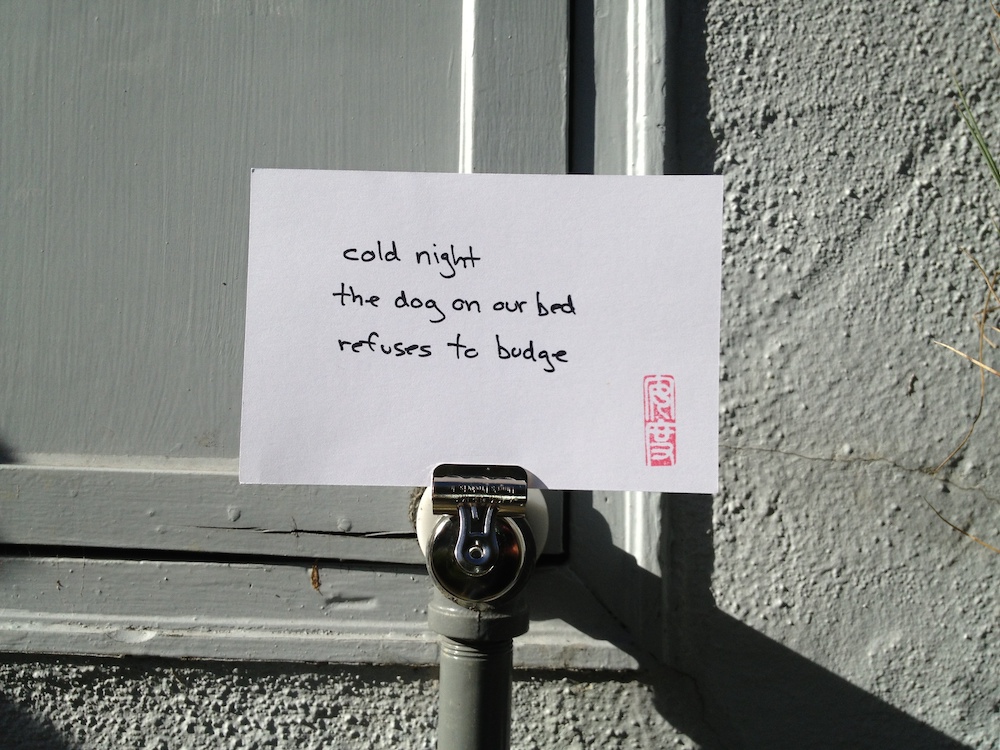 cold night
the dog on our bed
refuses to budge